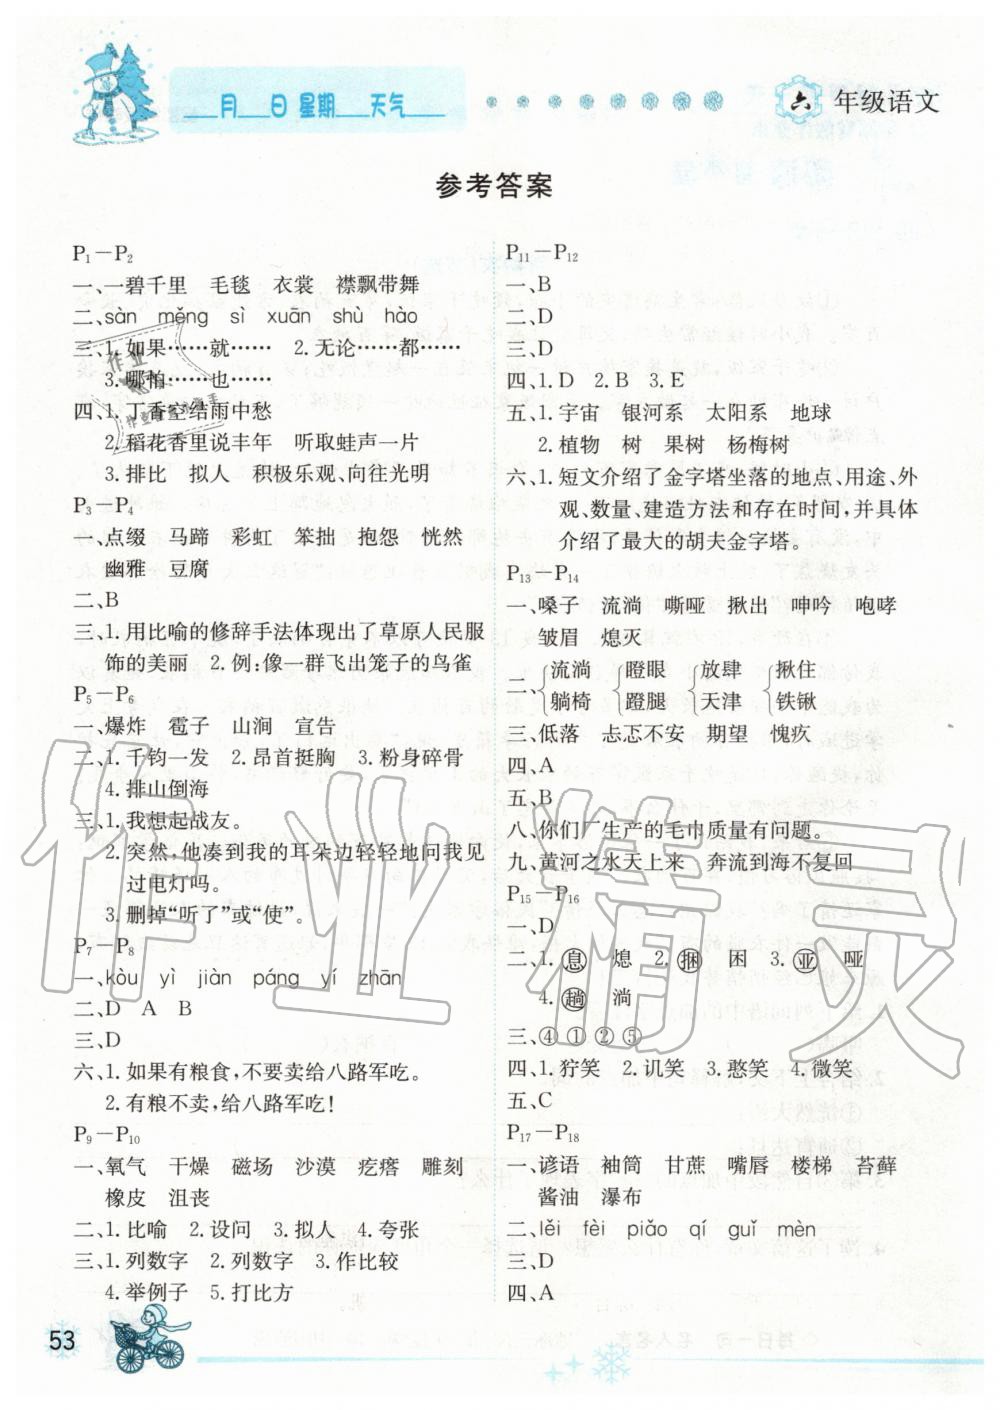 月 日 星期 天气
六 年级语文
参考答案
P1－P2
一、一碧千里 毛毯 衣裳 襟飘带舞
二、sàn měng sì xuān shù hào
三、1. 如果……就…… 2. 无论……都……
3. 哪怕……也……
四、1. 丁香空结雨中愁
2. 稻花香里说丰年 听取蛙声一片
3. 排比 拟人 积极乐观、向往光明
P3－P4
一、点缀 马蹄 彩虹 笨拙 抱怨 恍然
幽雅 豆腐
二、B
三、1. 用比喻的修辞手法体现出了草原人民服
饰的美丽 2. 例:像一群飞出笼子的鸟雀
P5－P6
一、爆炸 雹子 山涧 宣告
二、1. 千钧一发 2. 昂首挺胸 3. 粉身碎骨
4. 排山倒海
三、1. 我想起战友。
2. 突然,他凑到我的耳朵边轻轻地问我见
过电灯吗。
3. 删掉“听了”或“使”。
P7－P8
一、kòu yì jiàn páng yí zhān
二、D A B
三、D
六、1. 如果有粮食,不要卖给八路军吃。
2. 有粮不卖,给八路军吃!
P9－P10
一、氧气 干燥 磁场 沙漠 疙瘩 雕刻
橡皮 沮丧
二、1. 比喻 2. 设问 3. 拟人 4. 夸张
三、1. 列数字 2. 列数字 3. 作比较
4. 举例子 5. 打比方
53
P11－P12
一、B
二、D
三、D
四、1. D 2. B 3. E
五、1. 宇宙 银河系 太阳系 地球
2. 植物 树 果树 杨梅树
六、1. 短文介绍了金字塔坐落的地点、用途、外
观、数量、建造方法和存在时间，并具体
介绍了最大的胡夫金字塔。
P13－P14
一、嗓子 流淌 嘶哑 揪出 呻吟 咆哮
皱眉 熄灭
二、{流淌 {瞪眼 {放肆 {揪住
躺椅 瞪腿 天津 铁锹
三、低落 忐忑不安 期望 愧疚
四、A
五、B
八、你们厂生产的毛巾质量有问题。
九、黄河之水天上来 奔流到海不复回
P15－P16
一、D
二、1. 息 熄 2. 捆 困 3. 亚 哑
4. 趟 淌
三、④①②⑤
四、1. 狞笑 2. 讥笑 3. 憨笑 4. 微笑
五、C
P17－P18
一、谚语 袖筒 甘蔗 嘴唇 楼梯 苔藓
酱油 瀑布
二、lěi fèi piǎo qí guǐ mèn
三、D
四、A
作业精灵